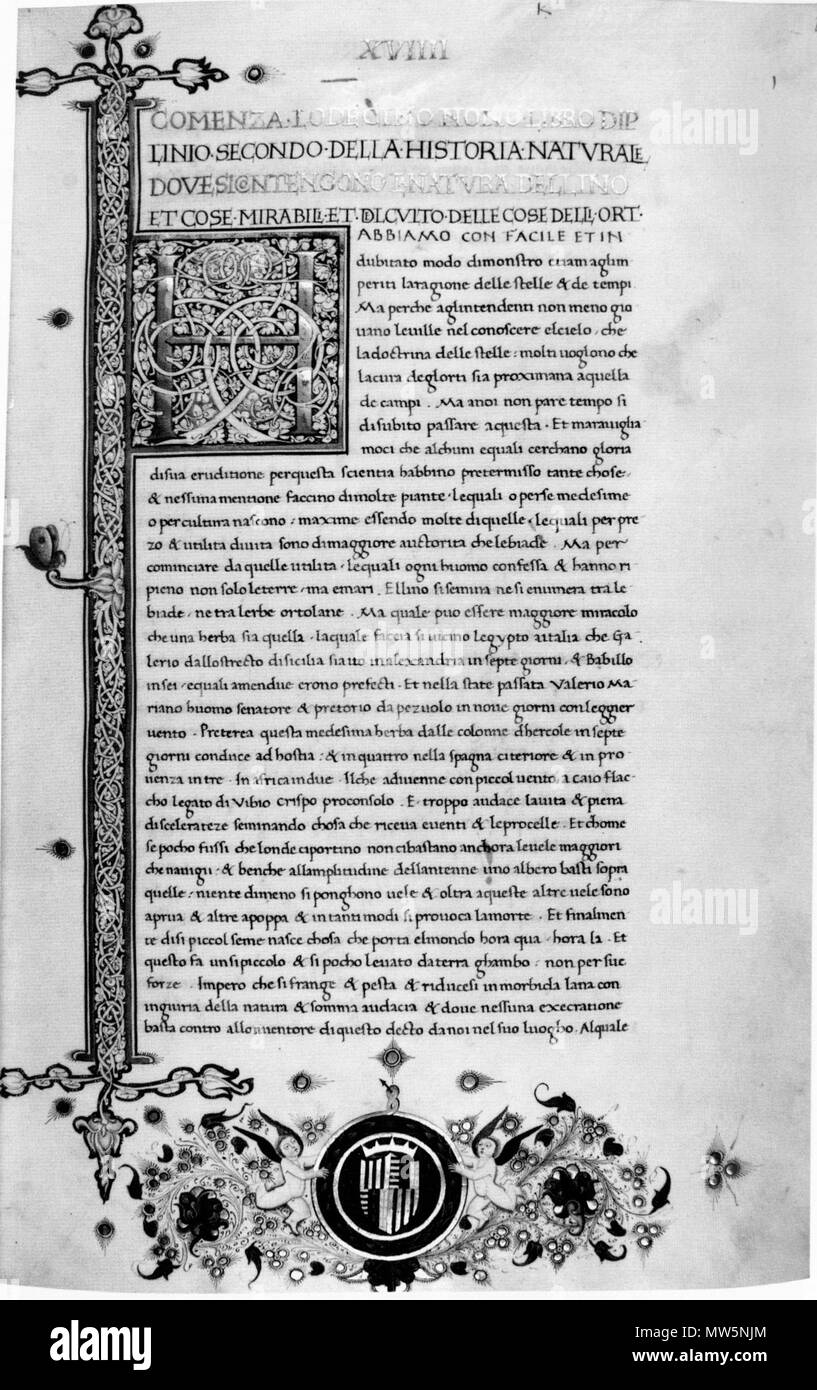 XVIIII
COMENZA·LO DECIMO NONO LIBRO DI P
LINIO·SECONDO·DELLA·HISTORIA·NATVRALE,
DOVE SI CONTENGONO E NATVRA DEL LINO
ET COSE·MIRABILI·ET·DL CVLTO·DELLE COSE DELL·ORT·
H
ABBIAMO CON FACILE ET IN
dubitato modo dimonstro etiam aglim
periti laragione delle stelle & de tempi
Ma perche aglintendenti non meno gio
uano leuille nel conoscere elcielo, che
la doctrina delle stelle: molti uoglono che
lacura deglorti sia proximana aquella
de campi. Ma anoi non pare tempo si
di subito passare aquesta. Et marauiglia
moci che alchuni equali cerchano gloria
disua eruditione per questa scientia habbino pretermisso tante chose:
& nessuna mentione faccino dimolte piante, lequali o perse medesime
o per cultura nascono: maxime essendo molte di quelle, lequali per pre
zo & utilita diuita sono dimaggiore auctorita che lebiade. Ma per
cominciare da quelle utilita, lequali ogni huomo confessa & hanno ri
pieno non solo leterre, ma e mari. El lino si semina ne si enumera tra le
biade, ne tra lerbe ortolane. Ma quale puo essere maggiore miracolo
che una herba sia quella, laquale faccia si uicino legypto aitalia che Ga
lerio dallo strecto di sicilia sia ito in alexandria in septe giorni, & Babillo
in sei, equali amendue erono prefecti. Et nella state passata Valerio Ma
riano huomo senatore & pretorio da pezuolo in noue giorni con leggier
uento. Preterea questa medesima herba dalle colonne dhercole in septe
giorni conduce ad hostia: & in quattro nella spagna citeriore & in pro
uenza in tre. In africa in due. Ilche aduenne con piccol uento, a caio flac
cho legato di Vibio Crispo proconsolo. E troppo audace la uita & piena
di scelerateze seminando chosa che riceua e uenti & le procelle. Et chome
se pocho fussi che londe ci portino non ci bastano anchora leuele maggiori
che nauigii: & benche allamplitudine dellantenne uno albero basti sopra
quelle: niente dimeno si ponghono uele & oltra aqueste altre uele sono
aprua & altre apoppa & in tanti modi si prouoca la morte. Et finalmen
te di si piccol seme nasce chosa che porta el mondo hora qua, hora la. Et
questo fa un si piccolo & si pocho leuato da terra ghambo: non per sue
forze. Impero che si frange & pesta & riducesi in morbida lana con
ingiuria della natura & somma audacia & doue nessuna execratione
basta contro allo inuentore di questo decto da noi nel suo luogho. Alquale
alamy
a
alamy
Image ID: MW5NJM
www.alamy.com